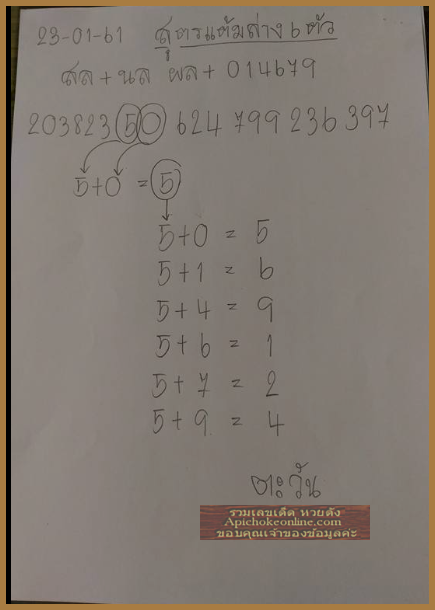 23-01-61 สูตรแต้มล่าง 6 ตัว
สล + นล ผล + 014679
203823 50 624 799 236 397
5+0 = 5
5+0 = 5
5+1 = 6
5+4 = 9
5+6 = 1
5+7 = 2
5+9 = 4
ตะวัน
รวมเลขเด็ด หวยดัง
Apichokeonline.com
ขอบคุณเจ้าของข้อมูลค่ะ